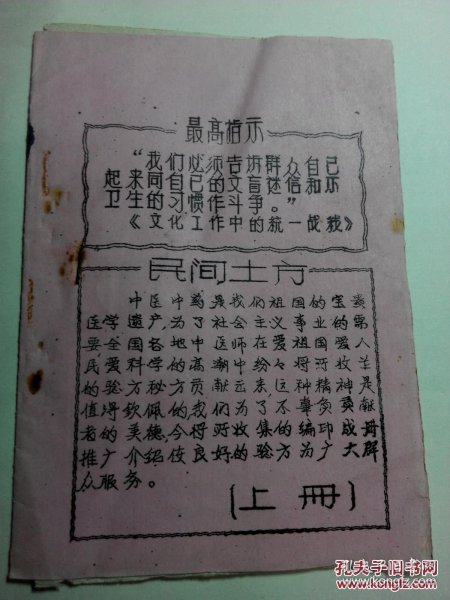 最高指示
“我们必须告诉群众自己
起来同自己的文盲迷信和不
卫生的习惯作斗争。”
《文化工作中的统一战线》
民间土方
中医中药是我们祖国的宝贵
医学遗产,为了社会主义事业的
要全国各地的在爱国
民爱科学高潮中纷纷将
的验秘方贡献出来,这种精神是
值得钦佩的,我们为了不负贡献
者的美德,今将收集的编印成册
推广介绍使良好的验方为广大群
众服务。
(上册)
孔夫子旧书网
www.kongfz.com